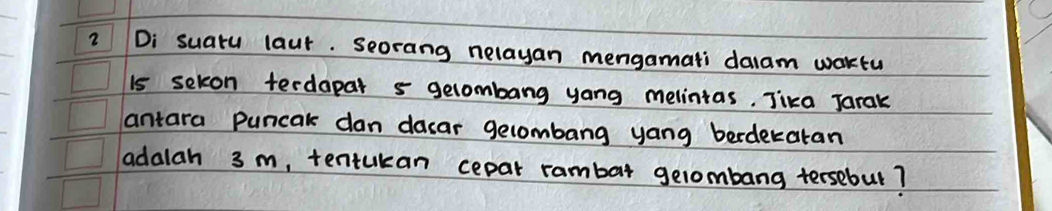 2 Di suatu laut. Seorang nelayan mengamati dalam waktu
15 sekon terdapat 5 gelombang yang melintas. Jika Jarak
antara puncak dan dasar gelombang yang berdekatan
adalah 3 m, tentukan cepat rambat gelombang tersebut?